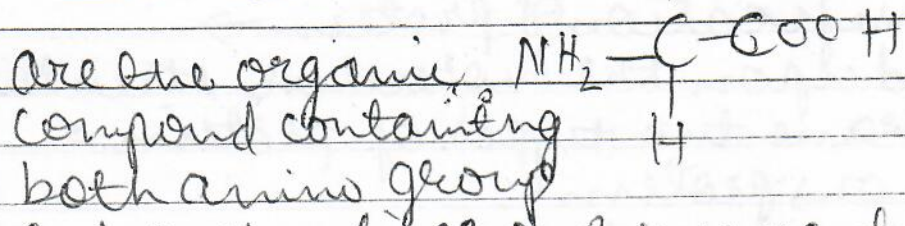 are the organic NH₂-C-COOH
compond containing H
both amino group